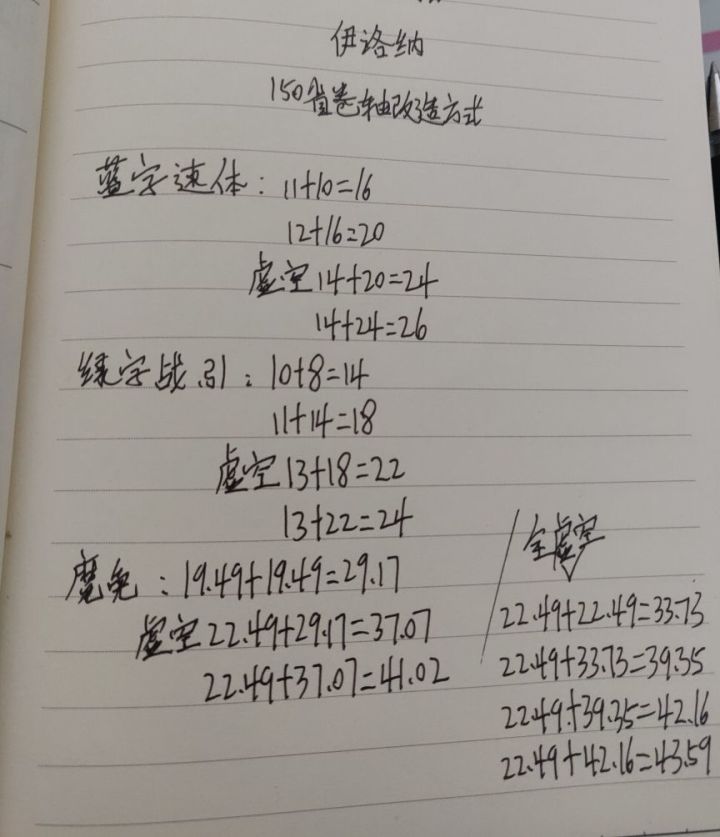 伊洛纳
150省卷轴改造方式
蓝字速体：11+10=16
12+16=20
虚空14+20=24
14+24=26
绿字战引：10+8=14
11+14=18
虚空13+18=22
13+22=24
魔免：19.49+19.49=29.17
虚空22.49+29.17=37.07
22.49+37.07=41.02
全虚空
22.49+22.49=33.73
22.49+33.73=39.35
22.49+39.35=42.16
22.49+42.16=43.59